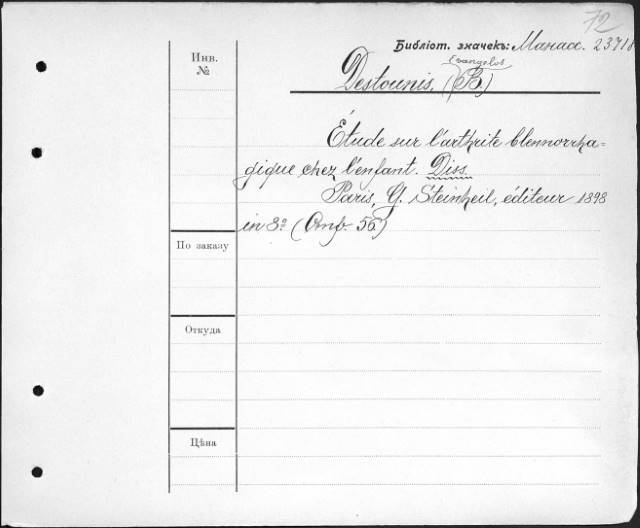 72
Библіот. значекъ: Манасс. 23718
Инв.
№
Evangelos
Destounis, (B)
Étude sur l'arthrite blennorrha-
gique chez l'enfant. Diss.
Paris, G. Steinheil, éditeur 1898
in 8º (Опб. 56)
По заказу
Откуда
Цѣна